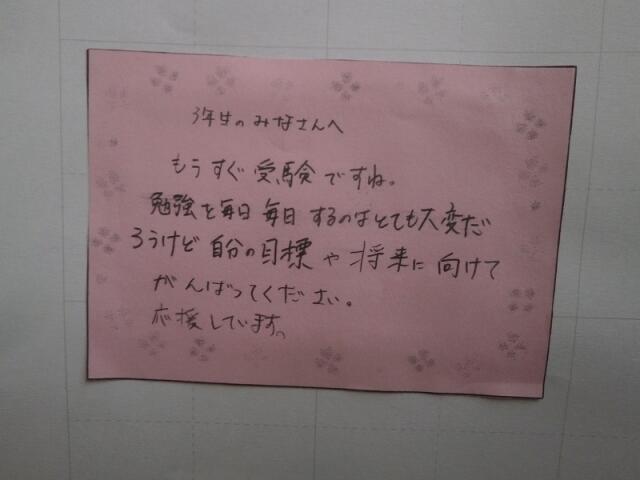 3年生のみなさんへ
もうすぐ受験ですね。
勉強を毎日毎日するのはとても大変だ
ろうけど自分の目標や将来に向けて
がんばってください。
応援しています。